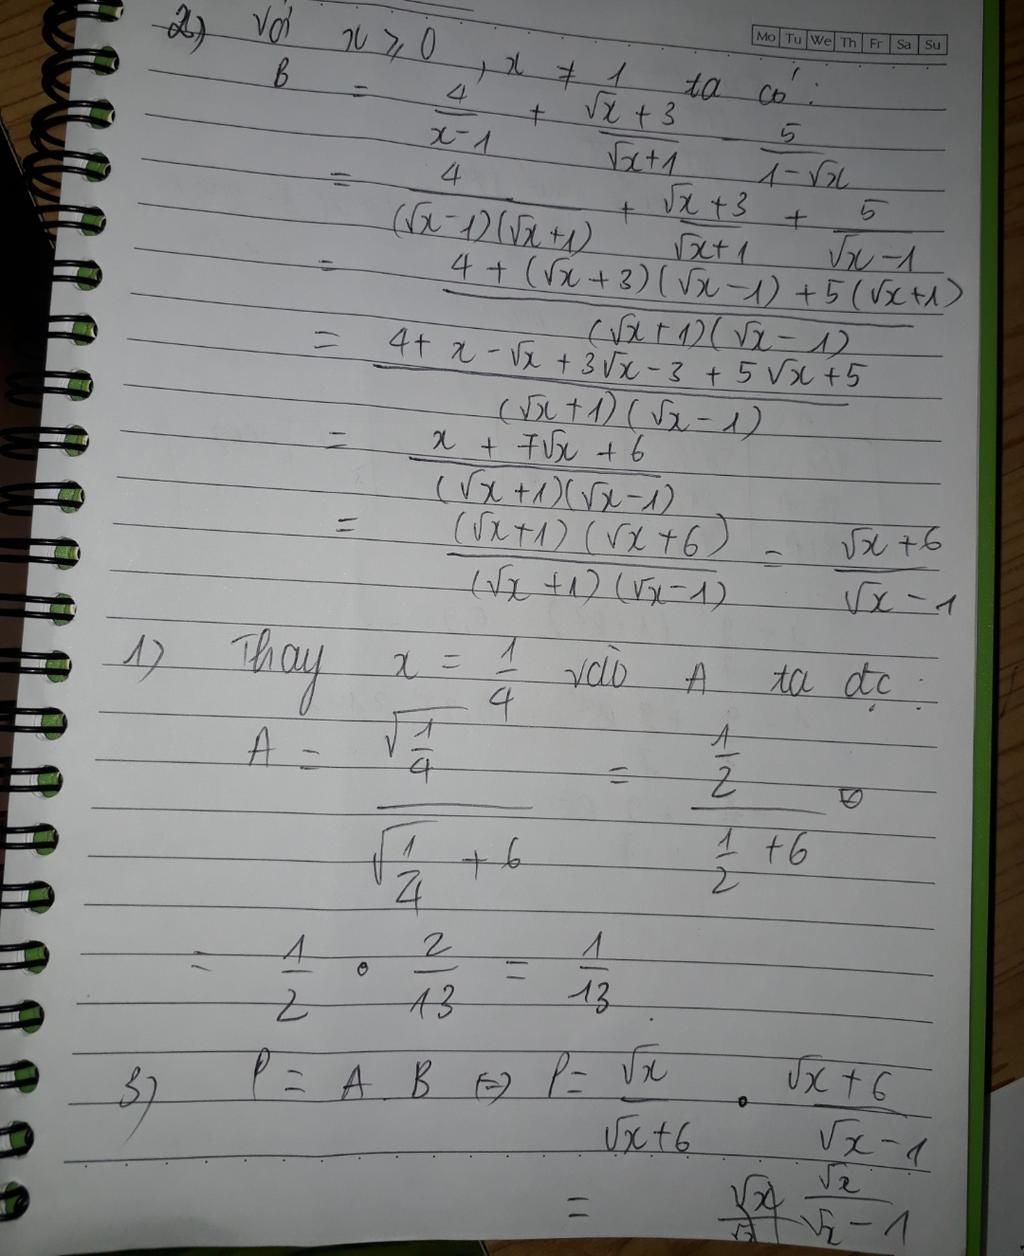 Mo Tu We Th Fr Sa Su
2) Với x ≥ 0, x ≠ 1 ta có:
B = 4/(x-1) + (√x + 3)/(√x+1) - 5/(1-√x)
= 4/((√x-1)(√x+1)) + (√x+3)/(√x+1) + 5/(√x-1)
= (4 + (√x+3)(√x-1) + 5(√x+1))/((√x+1)(√x-1))
= (4 + x - √x + 3√x - 3 + 5√x + 5)/((√x+1)(√x-1))
= (x + 7√x + 6)/((√x+1)(√x-1))
= ((√x+1)(√x+6))/((√x+1)(√x-1)) = (√x+6)/(√x-1)
1) Thay x = 1/4 vào A ta đc:
A = √(1/4)/(√(1/4) + 6) = (1/2)/(1/2 + 6)
= 1/2 . 2/13 = 1/13.
3) P = A. B ⇔ P = √x/(√x+6) . (√x+6)/(√x-1)
= √x/(√x-1)